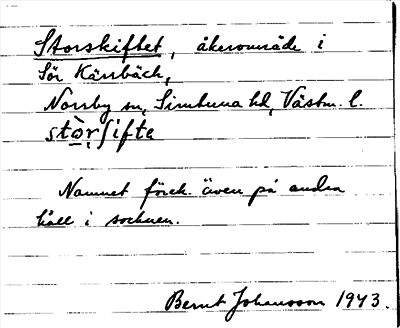 Storskiftet, åkerområde i
Sör Kärrbäck,
Norrby sn, Simtuna hd, Västm. l.
stòrʃifte
Namnet förek. även på andra
håll i socknen.
Bernt Johansson 1943.